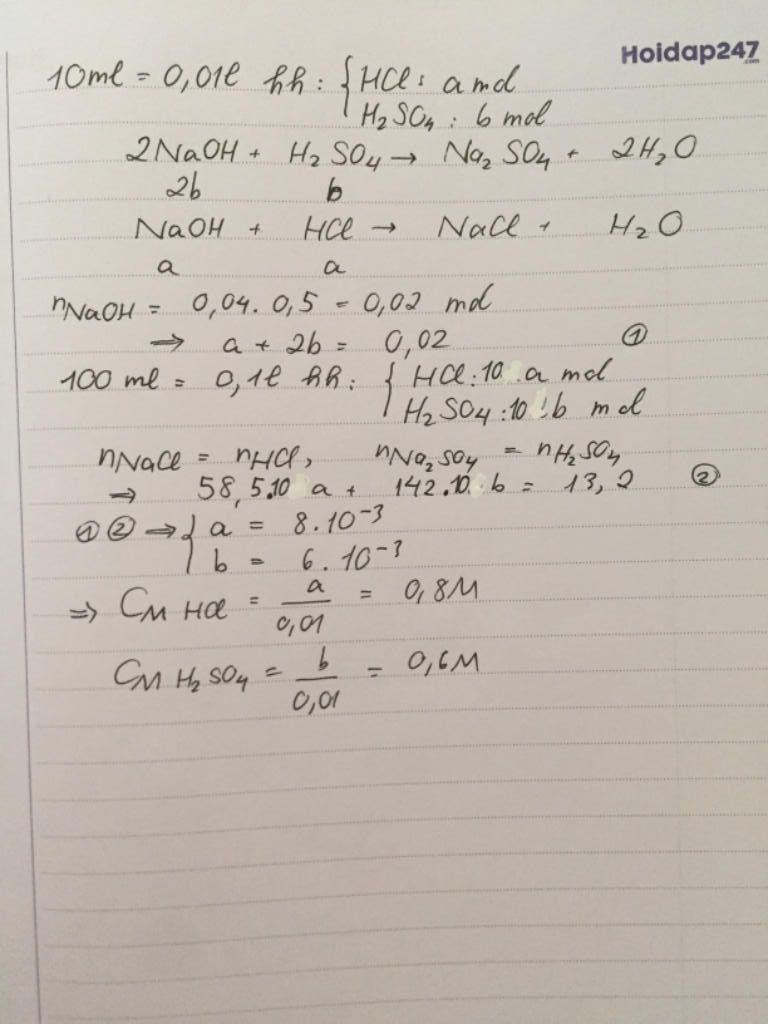 Hoidap247
.com
10ml = 0,01l hh : { HCl : a mol
H₂SO₄ : b mol
2NaOH + H₂SO₄ → Na₂SO₄ + 2H₂O
2b b
NaOH + HCl → NaCl + H₂O
a a
nNaOH = 0,04. 0,5 = 0,02 mol
⇒ a + 2b = 0,02 ①
100 ml = 0,1l hh : { HCl : 10 . a mol
H₂SO₄ : 10 . b mol
nNaCl = nHCl, nNa₂SO₄ = nH₂SO₄
⇒ 58,5.10 a + 142.10. b = 13,2 ②
① ② ⇒ { a = 8.10⁻³
b = 6.10⁻³
⇒ CM HCl = a/0,01 = 0,8M
CM H₂SO₄ = b/0,01 = 0,6M